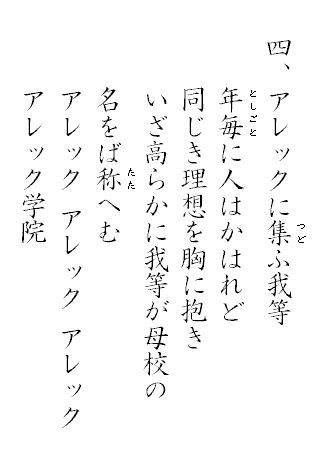 四、アレックに集ふ我等
年毎に人はかはれど
同じき理想を胸に抱き
いざ高らかに我等が母校の
名をば称へむ
アレック アレック アレック
アレック学院